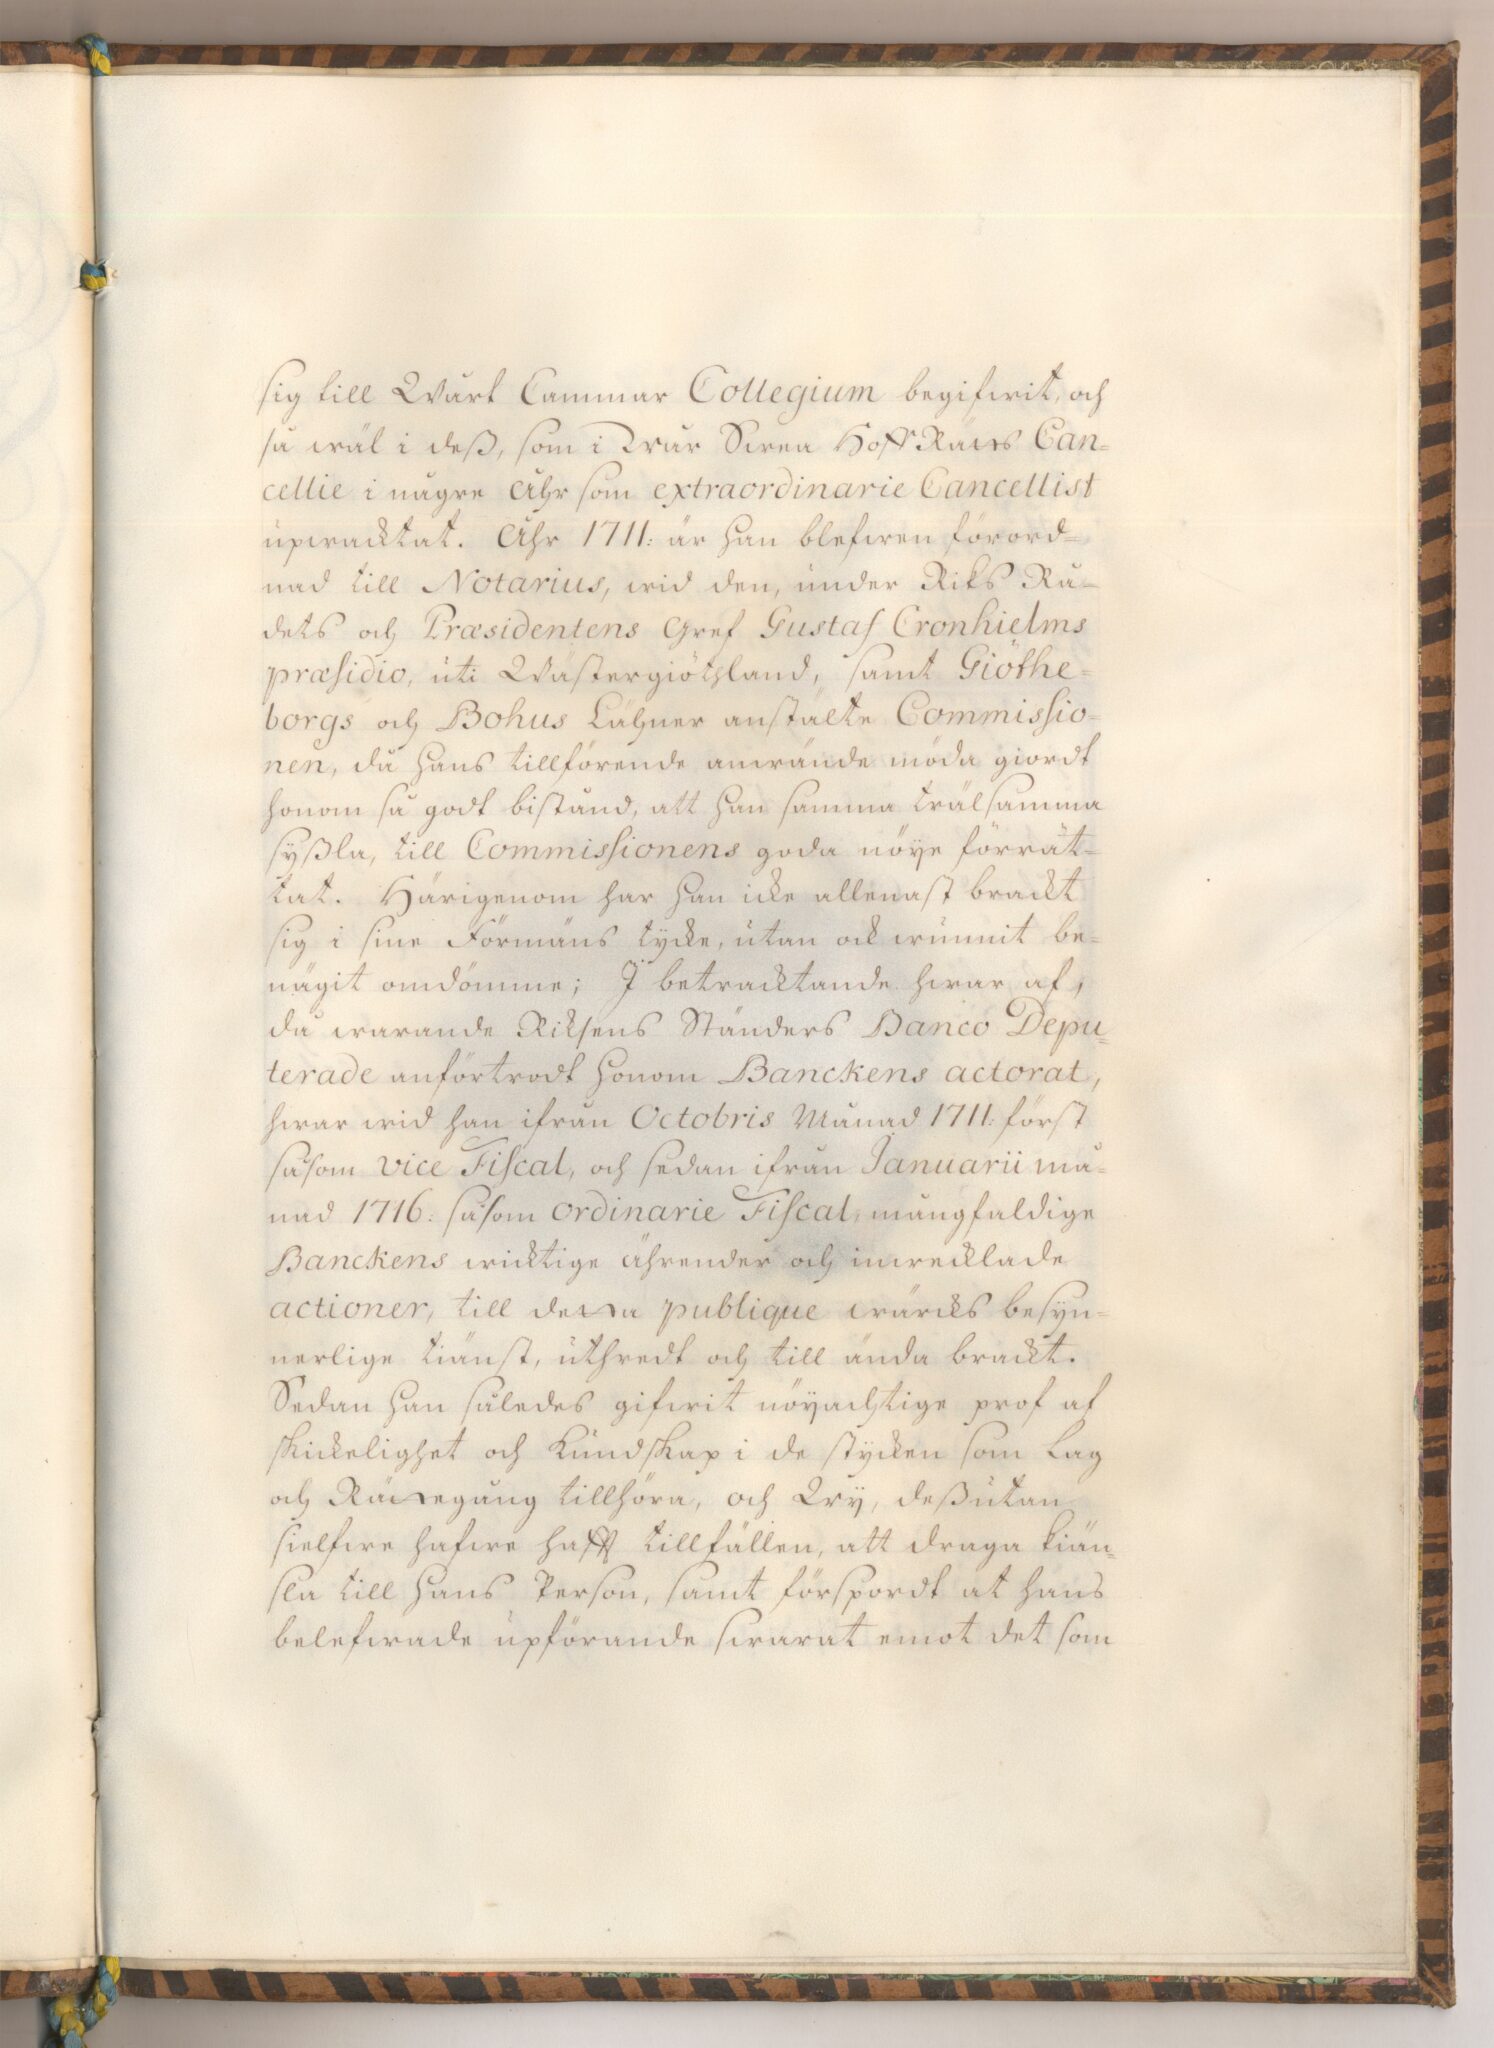 sig till Wårt Cammar Collegium begifwit, och
så wäl i deß, som i wår Swea Hoff Rätts Can-
cellie i någre Åhr som extraordinarie Cancellist
upwacktat. Åhr 1711: är han blefwen förord-
nad till Notarius, wid den, under Riks Rå-
dets och Præsidentens Gref Gustaf Cronhielms
præsidio, uti Wästergiöthland, samt Giöthe-
borgs och Bohus Lähner anstälte Commissio-
nen, då hans tillförende anwände möda giordt
honom så godt bistånd, att han samma trälsamma
syßla, till Commissionens goda nöye förrät-
tat. Härigenom har han icke allenast brackt
sig i sine Förmäns tycke, utan ock wunnit be-
nägit omdömme; I betracktande hwar af,
då warande Riksens Ständers Banco Depu-
terade anförtrodt honom Banckens actorat,
hwar wid han ifrån Octobris Månad 1711: först
såsom vice Fiscal, och sedan ifrån Januarii må-
nad 1716: såsom ordinarie Fiscal, mångfaldige
Banckens wicktige ährender och inwecklade
actioner, till detta publique wärcks besyn-
nerlige tiänst, uthredt och till ända brackt.
Sedan han således gifwit nöyachtige prof af
skickelighet och Kundskap i de stycken som Lag
och Rättegång tillhöra, och Wy, deßutan
sielfwe hafwe hafft tillfällen, att draga kiän-
sla till hans Person, samt förspordt at hans
belefwade upförande swarat emot det som